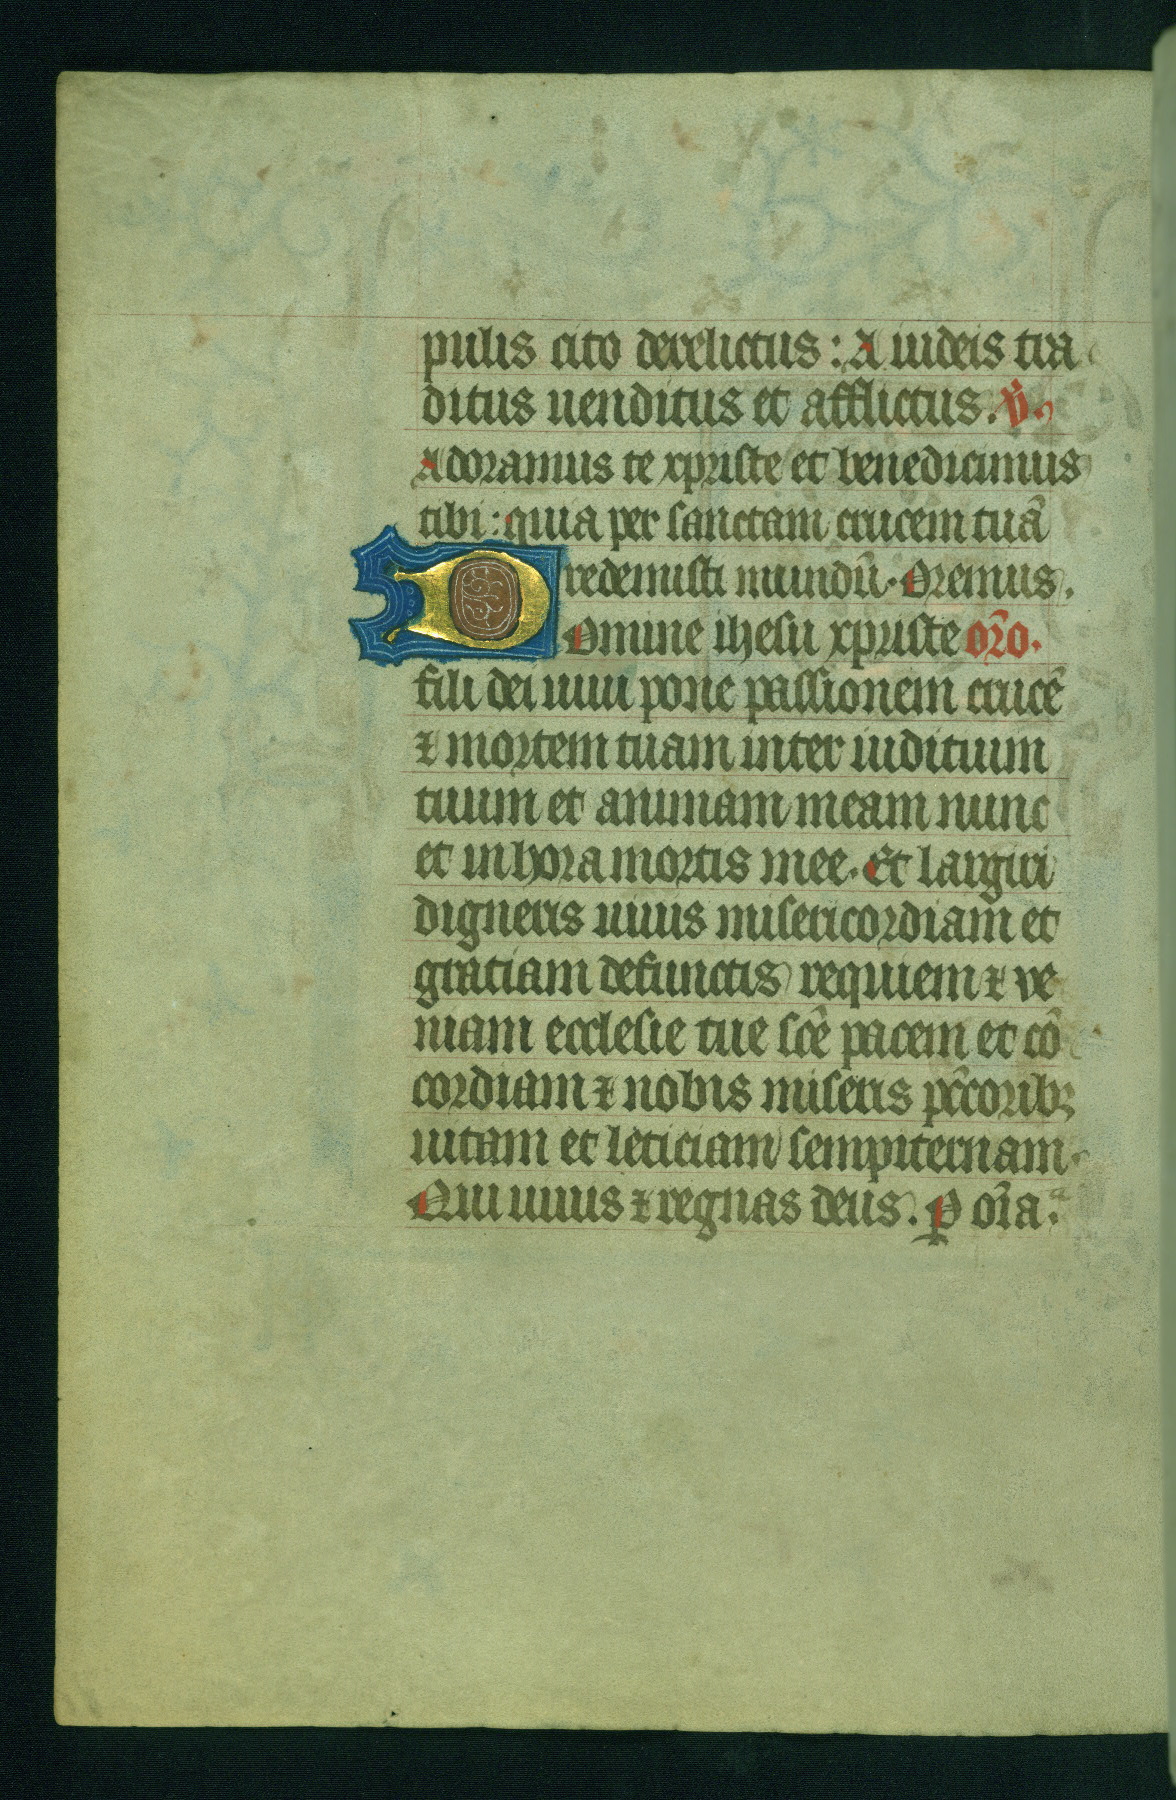 pulis cito derelictus : A iudeis tra
ditus uenditus et afflictus. V̄.
Adoramus te xpriste et benedicimus
tibi : quia per sanctam crucem tuā
redemisti mundū. Oremus.
DOmine ihesu xpriste or̄o.
fili dei uiui pone passionem crucē
⁊ mortem tuam inter iudicium
tuum et animam meam nunc
et in hora mortis mee. Et largiri
digneris uiuis misericordiam et
gratiam defunctis requiem ⁊ ve
niam ecclesie tue sc̄e pacem et cō
cordiam ⁊ nobis miseris pc̄coribꝫ
uitam et leticiam sempiternam.
Qui uiuis ⁊ regnas deus. P om̄a.